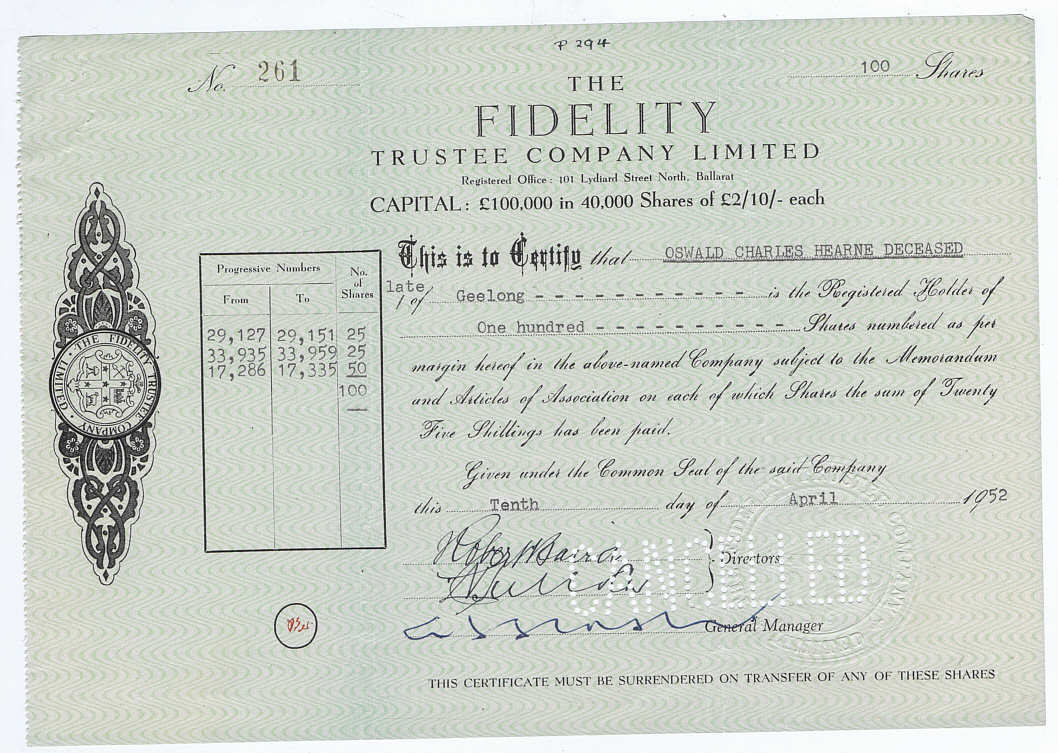 P 294
No. 261
100 Shares
THE
FIDELITY
TRUSTEE COMPANY LIMITED
Registered Office: 101 Lydiard Street North, Ballarat
CAPITAL: £100,000 in 40,000 Shares of £2/10/- each
This is to Certify that OSWALD CHARLES HEARNE DECEASED
late
/ of Geelong - - - - - - - - - - - is the Registered Holder of
One hundred - - - - - - - - - - Shares numbered as per
margin hereof in the above-named Company subject to the Memorandum
and Articles of Association on each of which Shares the sum of Twenty
Five Shillings has been paid.
Given under the Common Seal of the said Company
this Tenth day of April 1952
Progressive Numbers No. of Shares
From To
29,127 29,151 25
33,935 33,959 25
17,286 17,335 50
100
THE FIDELITY TRUSTEE COMPANY LIMITED
Directors
CANCELLED
General Manager
THIS CERTIFICATE MUST BE SURRENDERED ON TRANSFER OF ANY OF THESE SHARES